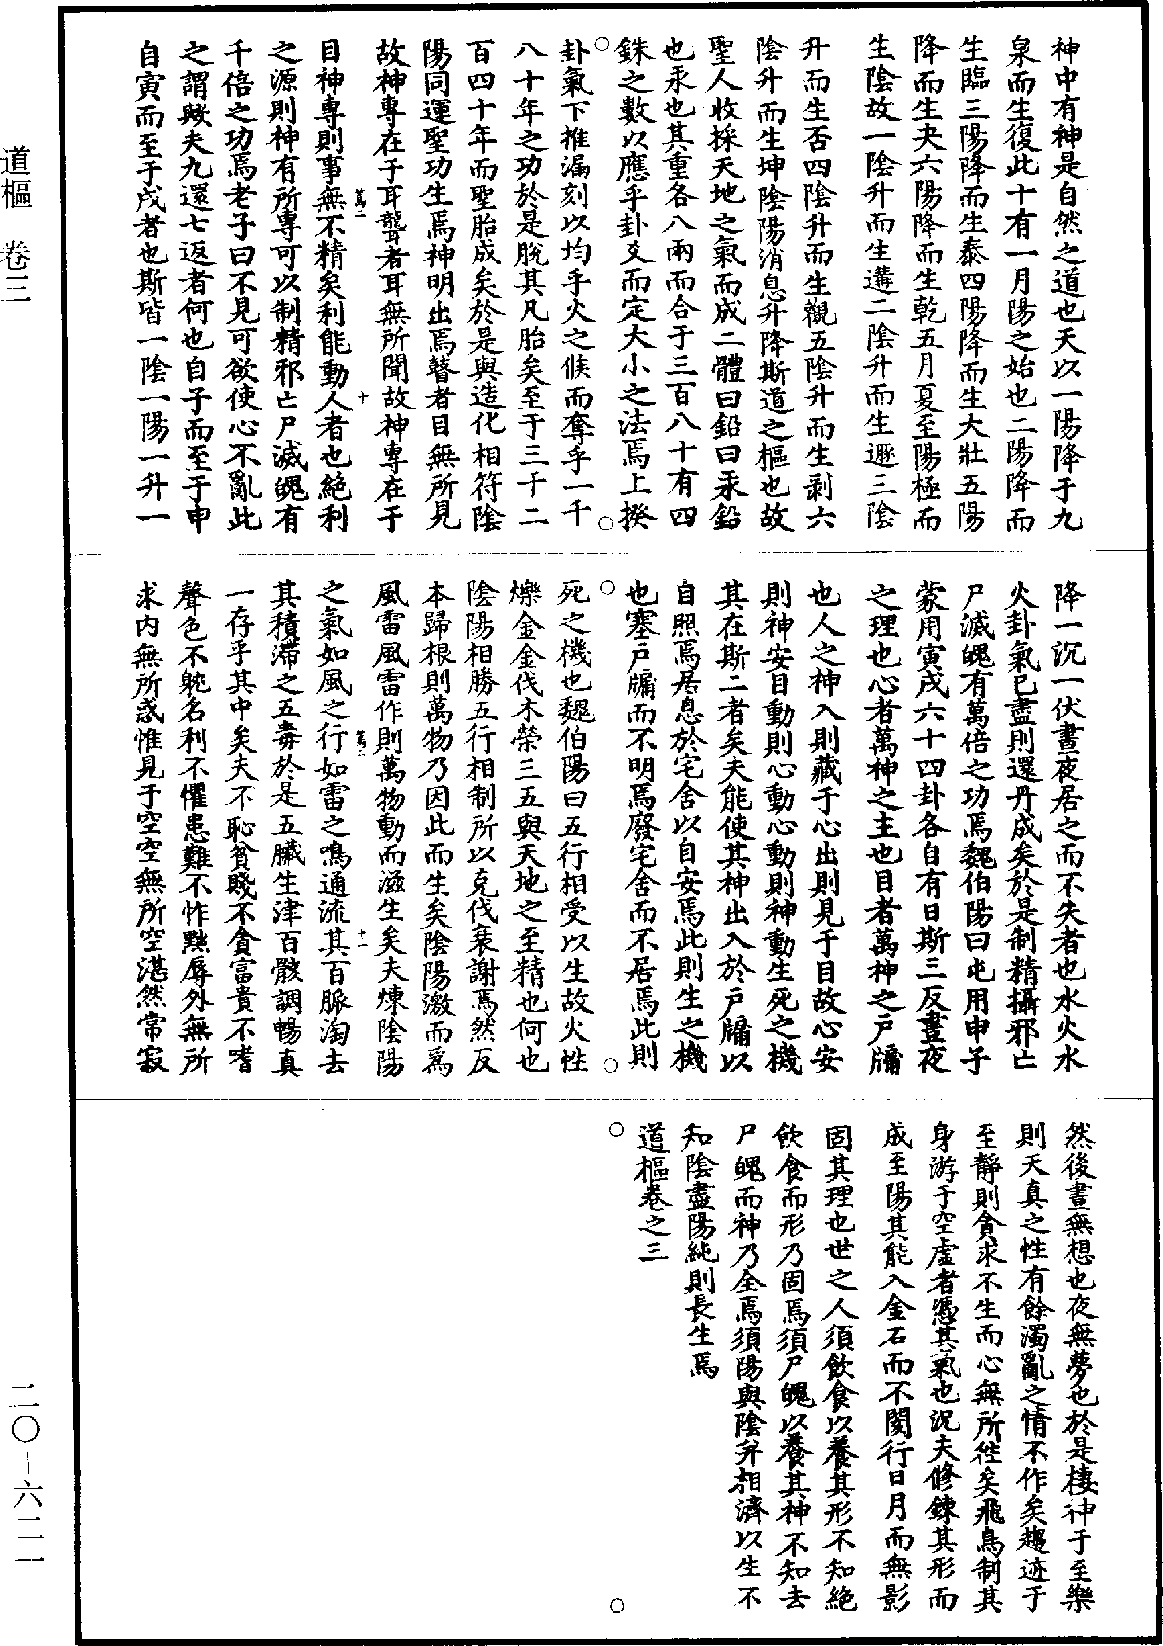 神中有神是自然之道也天以一陽降于九
泉而生復此十有一月陽之始也二陽降而
生臨三陽降而生泰四陽降而生大壯五陽
降而生夬六陽降而生乾五月夏至陽極而
生陰故一陰升而生遘二陰升而生遯三陰
升而生否四陰升而生觀五陰升而生剥六
陰升而生坤陰陽消息升降斯道之樞也故
聖人收採天地之氣而成二體曰鉛曰汞鉛
也汞也其重各八兩而合于三百八十有四
銖之數以應乎卦爻而定大小之法焉上揆
卦氣下推漏刻以均乎火之候而奪乎一千
八十年之功於是脫其凡胎矣至于三千二
百四十年而聖胎成矣於是與造化相符陰
陽同運聖功生焉神明出焉瞽者目無所見
故神專在于耳聾者耳無所聞故神專在于
目神專則事無不精矣利能動人者也絶利
之源則神有所專可以制精邪亡尸滅魄有
千倍之功焉老子曰不見可欲使心不亂此
之謂歟夫九還七返者何也自子而至于申
自寅而至于戌者也斯皆一陰一陽一升一
降一沉一伏晝夜居之而不失者也水火水
火卦氣已盡則還丹成矣於是制精攝邪亡
尸滅魄有萬倍之功焉魏伯陽曰屯用申子
蒙用寅戌六十四卦各自有日斯三反晝夜
之理也心者萬神之主也目者萬神之戶牖
也人之神入則藏于心出則見于目故心安
則神安目動則心動心動則神動生死之機
其在斯二者矣夫能使其神出入於戶牖以
自照焉居息於宅舍以自安焉此則生之機
也塞戶牖而不明焉廢宅舍而不居焉此則
死之機也魏伯陽曰五行相受以生故火性
爍金金伐木榮三五與天地之至精也何也
陰陽相勝五行相制所以克伐衰謝焉然反
本歸根則萬物乃因此而生矣陰陽激而爲
風雷風雷作則萬物動而滋生矣夫煉陰陽
之氣如風之行如雷之鳴通流其百脈淘去
其積滯之五毒於是五臟生津百骸調暢真
一存乎其中矣夫不恥貧賤不貪富貴不嗜
聲色不躭名利不懼患難不怍黜辱外無所
求内無所惑惟見于空空無所空湛然常寂
然後晝無想也夜無夢也於是棲神于至樂
則天真之性有餘濁亂之情不作矣趨迹于
至靜則貪求不生而心無所往矣飛鳥制其
身游于空虛者憑其氣也況夫修鍊其形而
成至陽其能入金石而不閡行日月而無影
固其理也世之人須飲食以養其形不知絶
飲食而形乃固焉須尸魄以養其神不知去
尸魄而神乃全焉須陽與陰并相濟以生不
知陰盡陽純則長生焉
道樞卷之三
道樞　卷三
二〇－六二一